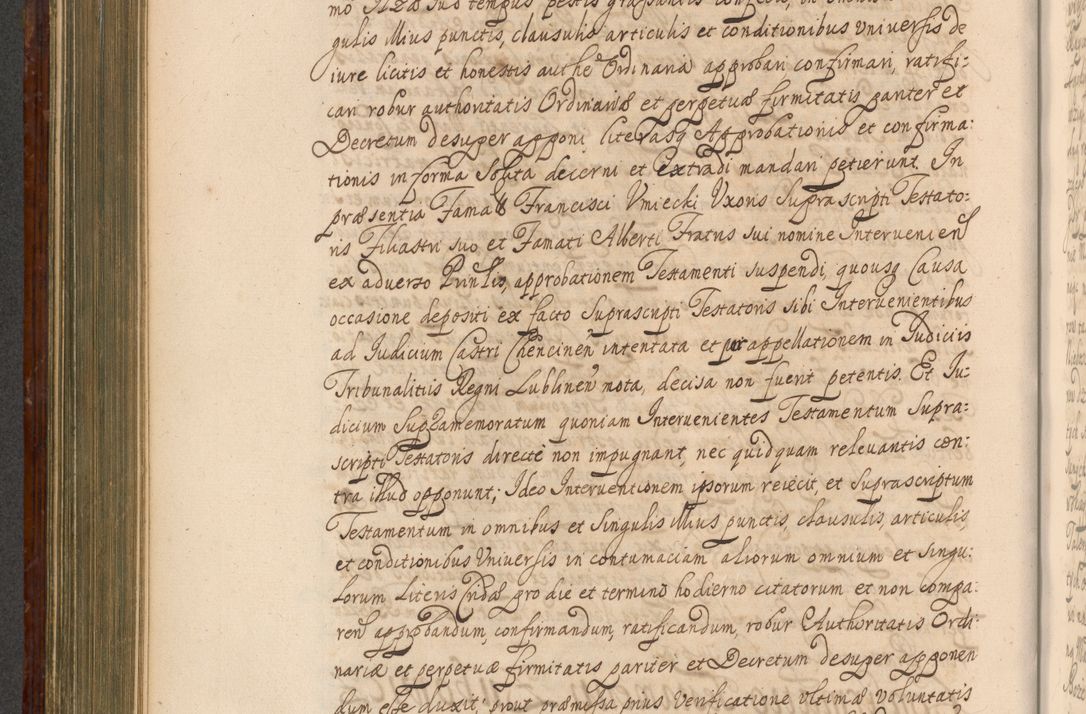 gulis illius punctis, clausulis articulis et conditionibus universis de
iure licitis et honestis authe Ordinaria approbari confirmari, ratifi:
cari robur authoritatis Ordinariæ et perpetuæ firmitatis pariter et
Decretum desuper apponi, literasq Approbationis et confirma:
tionis in forma solita decerni et extradi mandari petierunt. In
præsentia Famatæ Francisci Umiecki Uxoris Suprascripti Testato:
ris Filiastri suo et Famati Alberti Fratris sui nomine Interveniens
ex adverso Prinlis, approbationem Testamenti suspendi, quousq Causa
occasione depositi ex facto Suprascripti Testatoris sibi Intervenientibus
ad Iudicium Castri Chencinen intentata et per appellationem in Iudiciis
Tribunalitiis Regni Lublinen mota, decisa non fuerit petentis. Et Iu:
dicium Supramemoratum quoniam Intervenientes Testamentum Supra:
scripti Testatoris directe non impugnant, nec quidquam relevantis con:
tra illud opponunt; Ideo Interventionem ipsorum reiecit, et Suprascriptum
Testamentum in omnibus et Singulis illius punctis, clausulis, articulis,
et conditionibus Universis in contumaciam aliorum omnium et singu:
lorum literis Cridæ pro die et termino hodierno citatorum et non compa:
ren approbandum, confirmandum, ratificandum, robur Authoritatis Ordi:
nariæ et perpetuæ firmitatis pariter et Decretum desuper apponen
dum esse duxit; prout præmissa prius verificatione ultimæ voluntatis